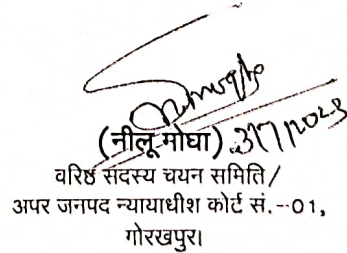 (नीलू मोघा)
वरिष्ठ सदस्य चयन समिति/
अपर जनपद न्यायाधीश कोर्ट सं.--01,
गोरखपुर।